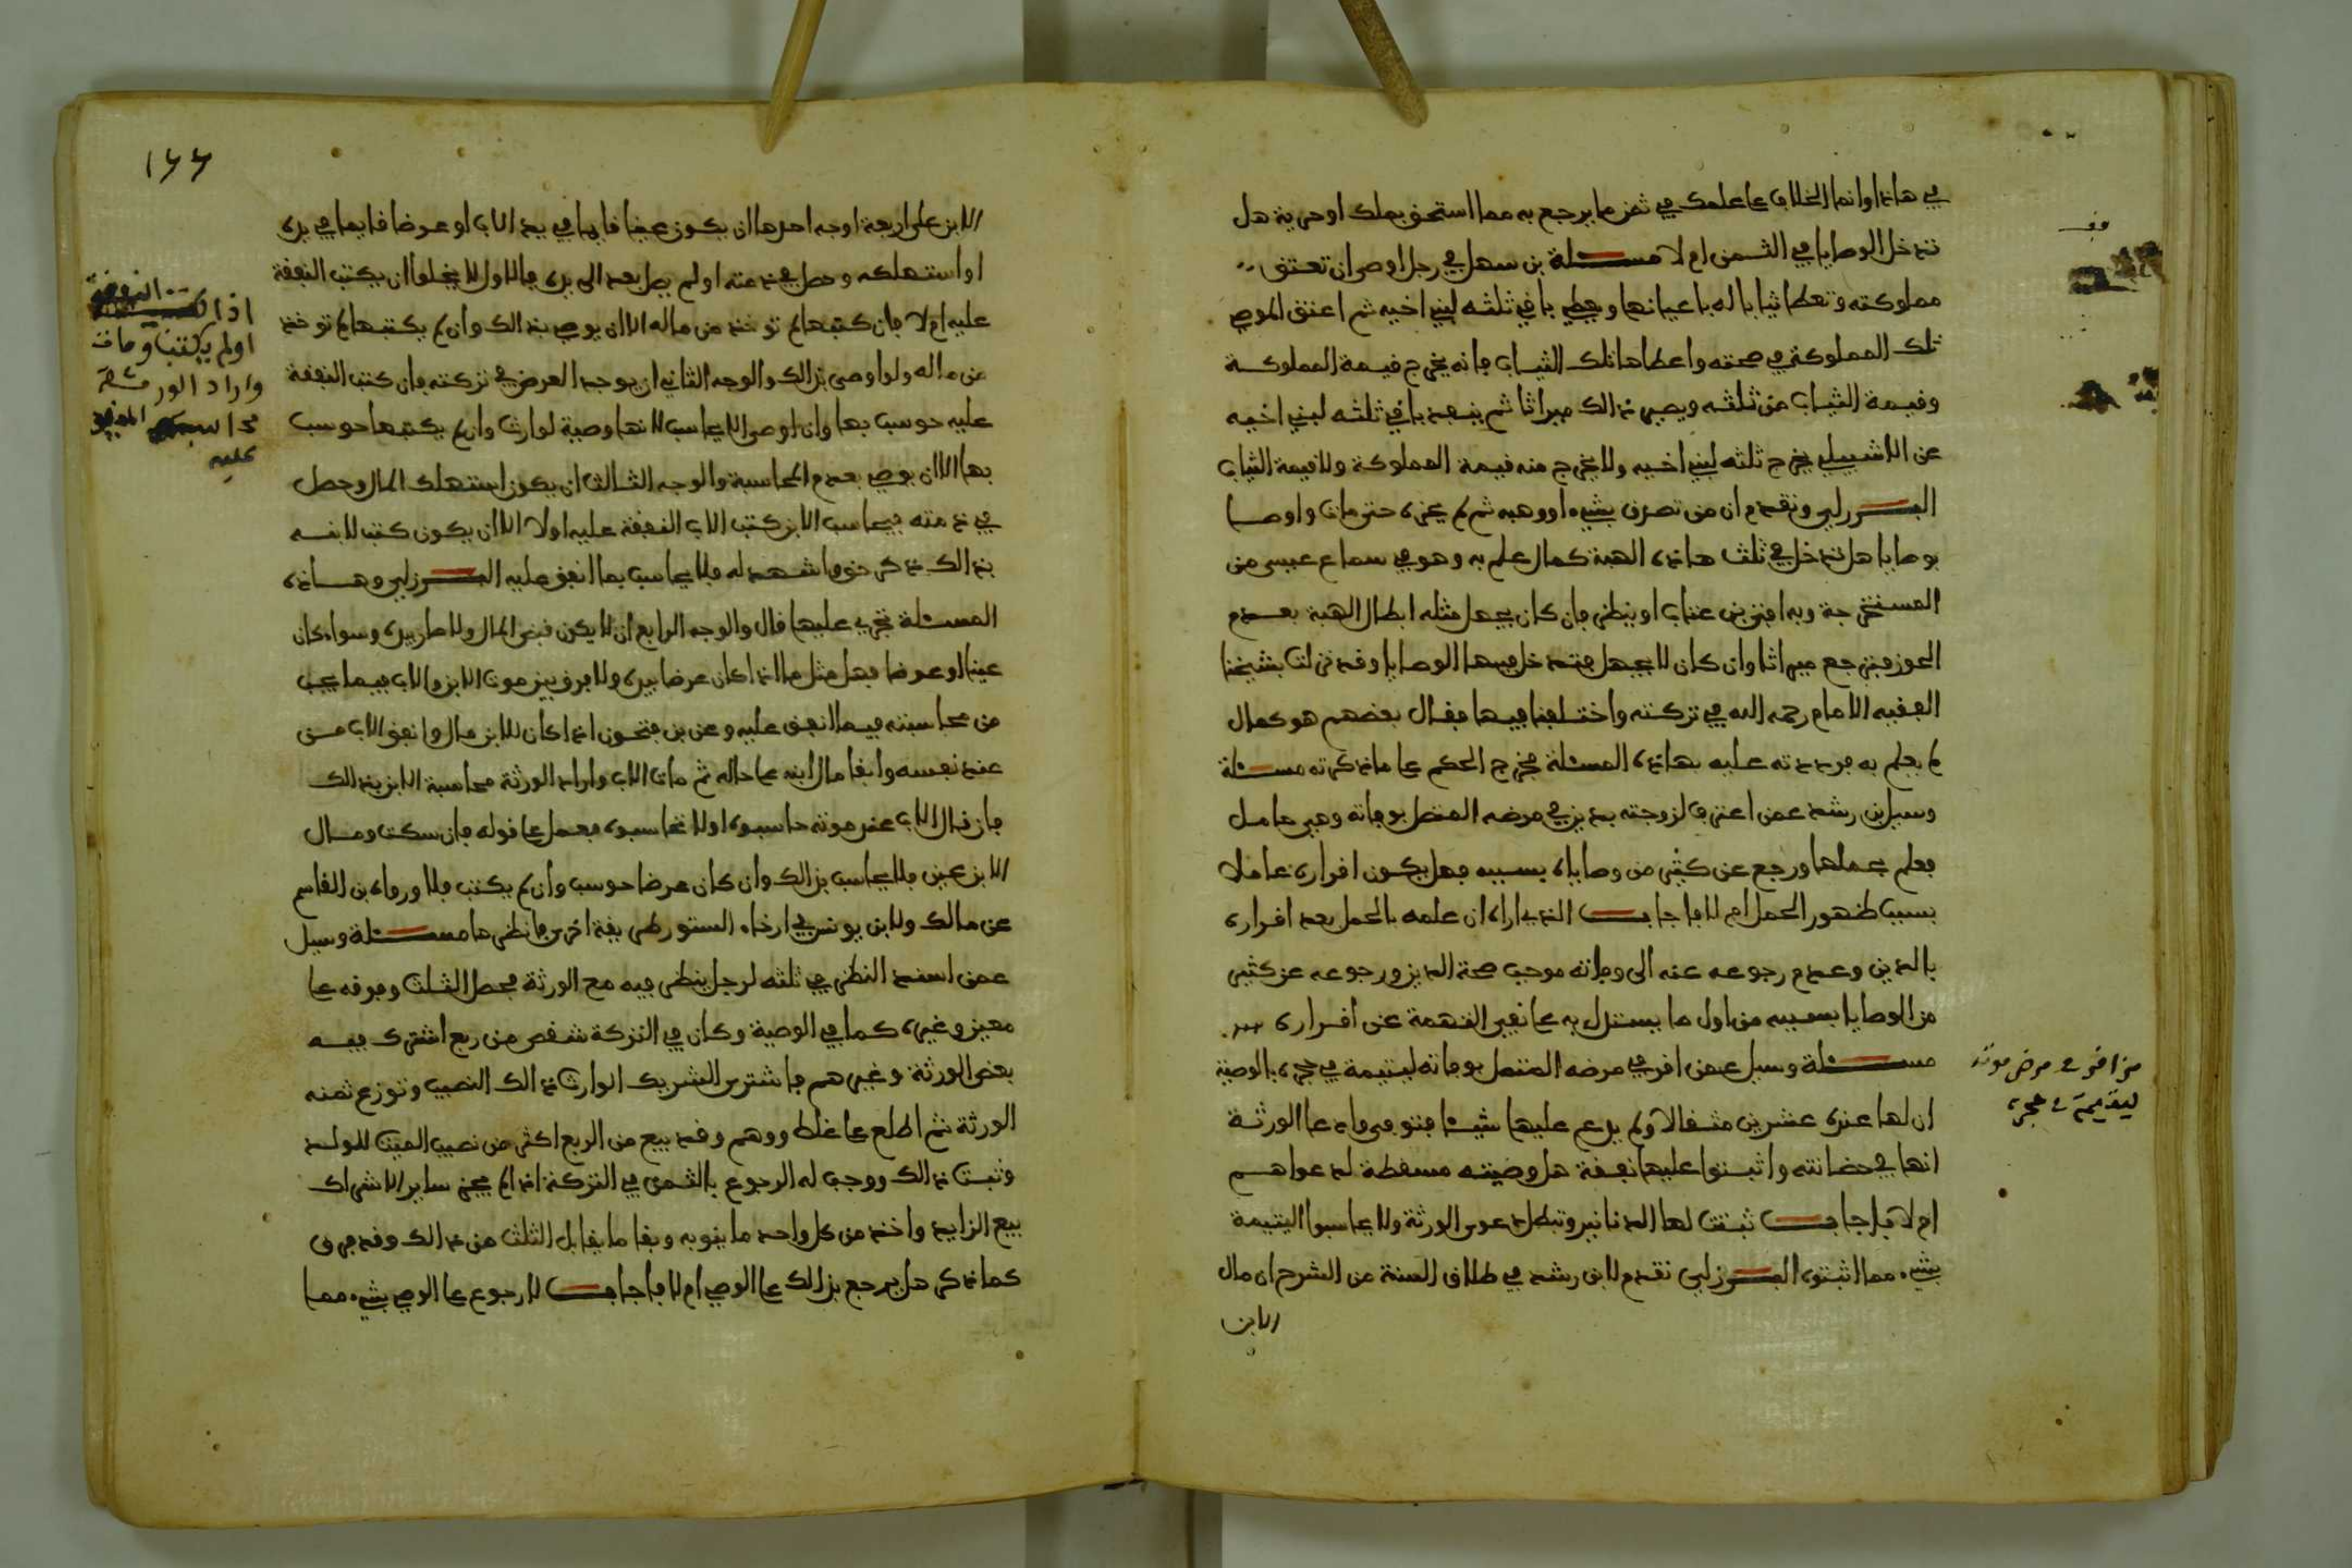 في هاذا وانما الخلاف على علمك في ثمن ما يرجع به مما استحق بملك او حرية هل
تدخل الوصايا في الثمن ام لا مسئلة بن سهل في رجل اوصى ان تعتق
مملوكته وتعطا ثيابا له باعيانها ويعطي باقي ثلثه لبني اخيه ثم اعتق الموصي
تلك المملوكة في صحته واعطاها تلك الثياب فانه يخرج قيمة المملوكة
وقيمة الثياب من ثلثه ويصير ذالك ميراثا ثم ينبعد باقي ثلثه لبني اخيه
عن الاشبيلي يخرج ثلثه لبني اخيه ولا يخرج منه قيمة المملوكة ولا قيمة الثياب
البرزلي وتقدم ان من تصرف بشيء او وهبه ثم لم يحز حتى مات واوصا
بوصايا هل تدخل في ثلث هاذه الهبة كمال علم به وهو في سماع عيسى من
المستخرجة وبه افتى بن عتاب اوينظر فان كان يجهل مثله ابطال الهبة بعدم
الحوز فترجع ميراثا وان كان لا يجهل فتدخل فيها الوصايا وقد نزلت بشيخنا
الفقيه الامام رحمه الله في تركته واختلفنا فيها فقال بعضهم هو كمال
لم يعلم به فرددته عليه بهاذه المسئلة فخرج الحكم على ما ذكرته مسئلة
وسيل بن رشد عمن اعترف لزوجته بدين في مرضه المتصل بوفاته وهي حامل
فعلم بحملها ورجع عن كثير من وصاياه بسببه فهل يكون اقراره عاملا
بسبب ظهور الحمل ام لا فاجاب الذي اراه ان علمه بالحمل بعد اقراره
بالدين وعدم رجوعه عنه الى وفاته موجب صحة الدين ورجوعه عن كثير
من الوصايا بسببه من اول ما يستدل به على نفي التهمة عن اقراره
مسئلة وسيل عمن اقر في مرضه المتصل بوفاته ليتيمة في حجره بالوصية
ان لها عنده عشرين مثقالا ولم يدع عليها شيئا فتوفي وادعا الورثة
انها في حضانته واثبتوا عليها نفقة هل وصيته مسقطة لدعواهم
ام لا فاجاب ثبتت لها الدنانير وتبطل دعوى الورثة ولا يحاسبوا اليتيمة
بشيء مما اثبتوه البرزلي تقدم لابن رشد في طلاق السنة من الشرح ان مال
الابن
من اقر في مرض موته
ليتيمة في حجره
١٦٦
الابن على اربعة اوجه احدها ان يكون عينا قايما في يد الاب او عرضا قايما في يده
او استهلكه وحصل في ذمته او لم يصل بعد الى يده فالاول لا يخلوا ان يكتب النفقة
عليه ام لا فان كتبها لم توخذ من ماله الا ان يوصي بذالك وان لم يكتبها لم توخذ
من ماله ولو اوصى بذالك والوجه الثاني ان يوجد العرض في تركته فان كتب النفقة
عليه حوسب بها وان اوصى الا يحاسب لانها وصية لوارث وان لم يكتبها حوسب
بها الا ان يوصي بعدم المحاسبة والوجه الثالث ان يكون استهلك المال وحصل
في ذمته فيحاسب الابن كتب الاب النفقة عليه اولا الا ان يكون كتب لابنه
بذالك ذكر حق واشهد له فلا يحاسب بما انفق عليه البرزلي وهاذه
المسئلة تجري عليها قال والوجه الرابع ان لا يكون قبض المال ولا صار بيده وسواء كان
عينا او عرضا فهل مثل ما اذا كان عرضا بيده ولا فرق بين موت الابن والاب فيما يجب
من محاسبته فيما انفق عليه وعن بن فتحون اذا كان للابن مال وانفق الاب من
عند نفسه وابقا مال ابنه على حاله ثم مات الاب واراد الورثة محاسبة الابن بذالك
فان قال الاب عند موته حاسبوه اولا تحاسبوه فيعمل على قوله فان سكت ومال
الابن عين فلا يحاسب بذالك وان كان عرضا حوسب وان لم يكتب فلا ورواه بن القاسم
عن مالك ولابن يونس في ارخاء الستور طريقة اخرى فانظرها مسئلة وسيل
عمن اسند النظر في ثلثه لرجل ينظر فيه مع الورثة فحصل الثلث وفرقه على
معين وغيره كما في الوصية وكان في التركة شقص من ربع اشترك فيه
بعض الورثة وغيرهم فاشترى الشريك الوارث ذالك النصيب وتوزع ثمنه
الورثة ثم اطلع على غلط ووهم وقد بيع من الربع اكثر من نصيب الميت للولد
وثبت ذالك ووجب له الرجوع بالثمن في التركة اذ لم يجز ساير الاشراك
بيع الزايد واخذ من كل واحد ما ينوبه وبقا ما يقابل الثلث من ذالك وقد فرق
كما ذكر هل يرجع بذالك على الوصي ام لا فاجاب لا رجوع على الوصي بشيء مما
اذا كتب النفقة
اولم يكتبها ومات
واراد الورثة
عليه